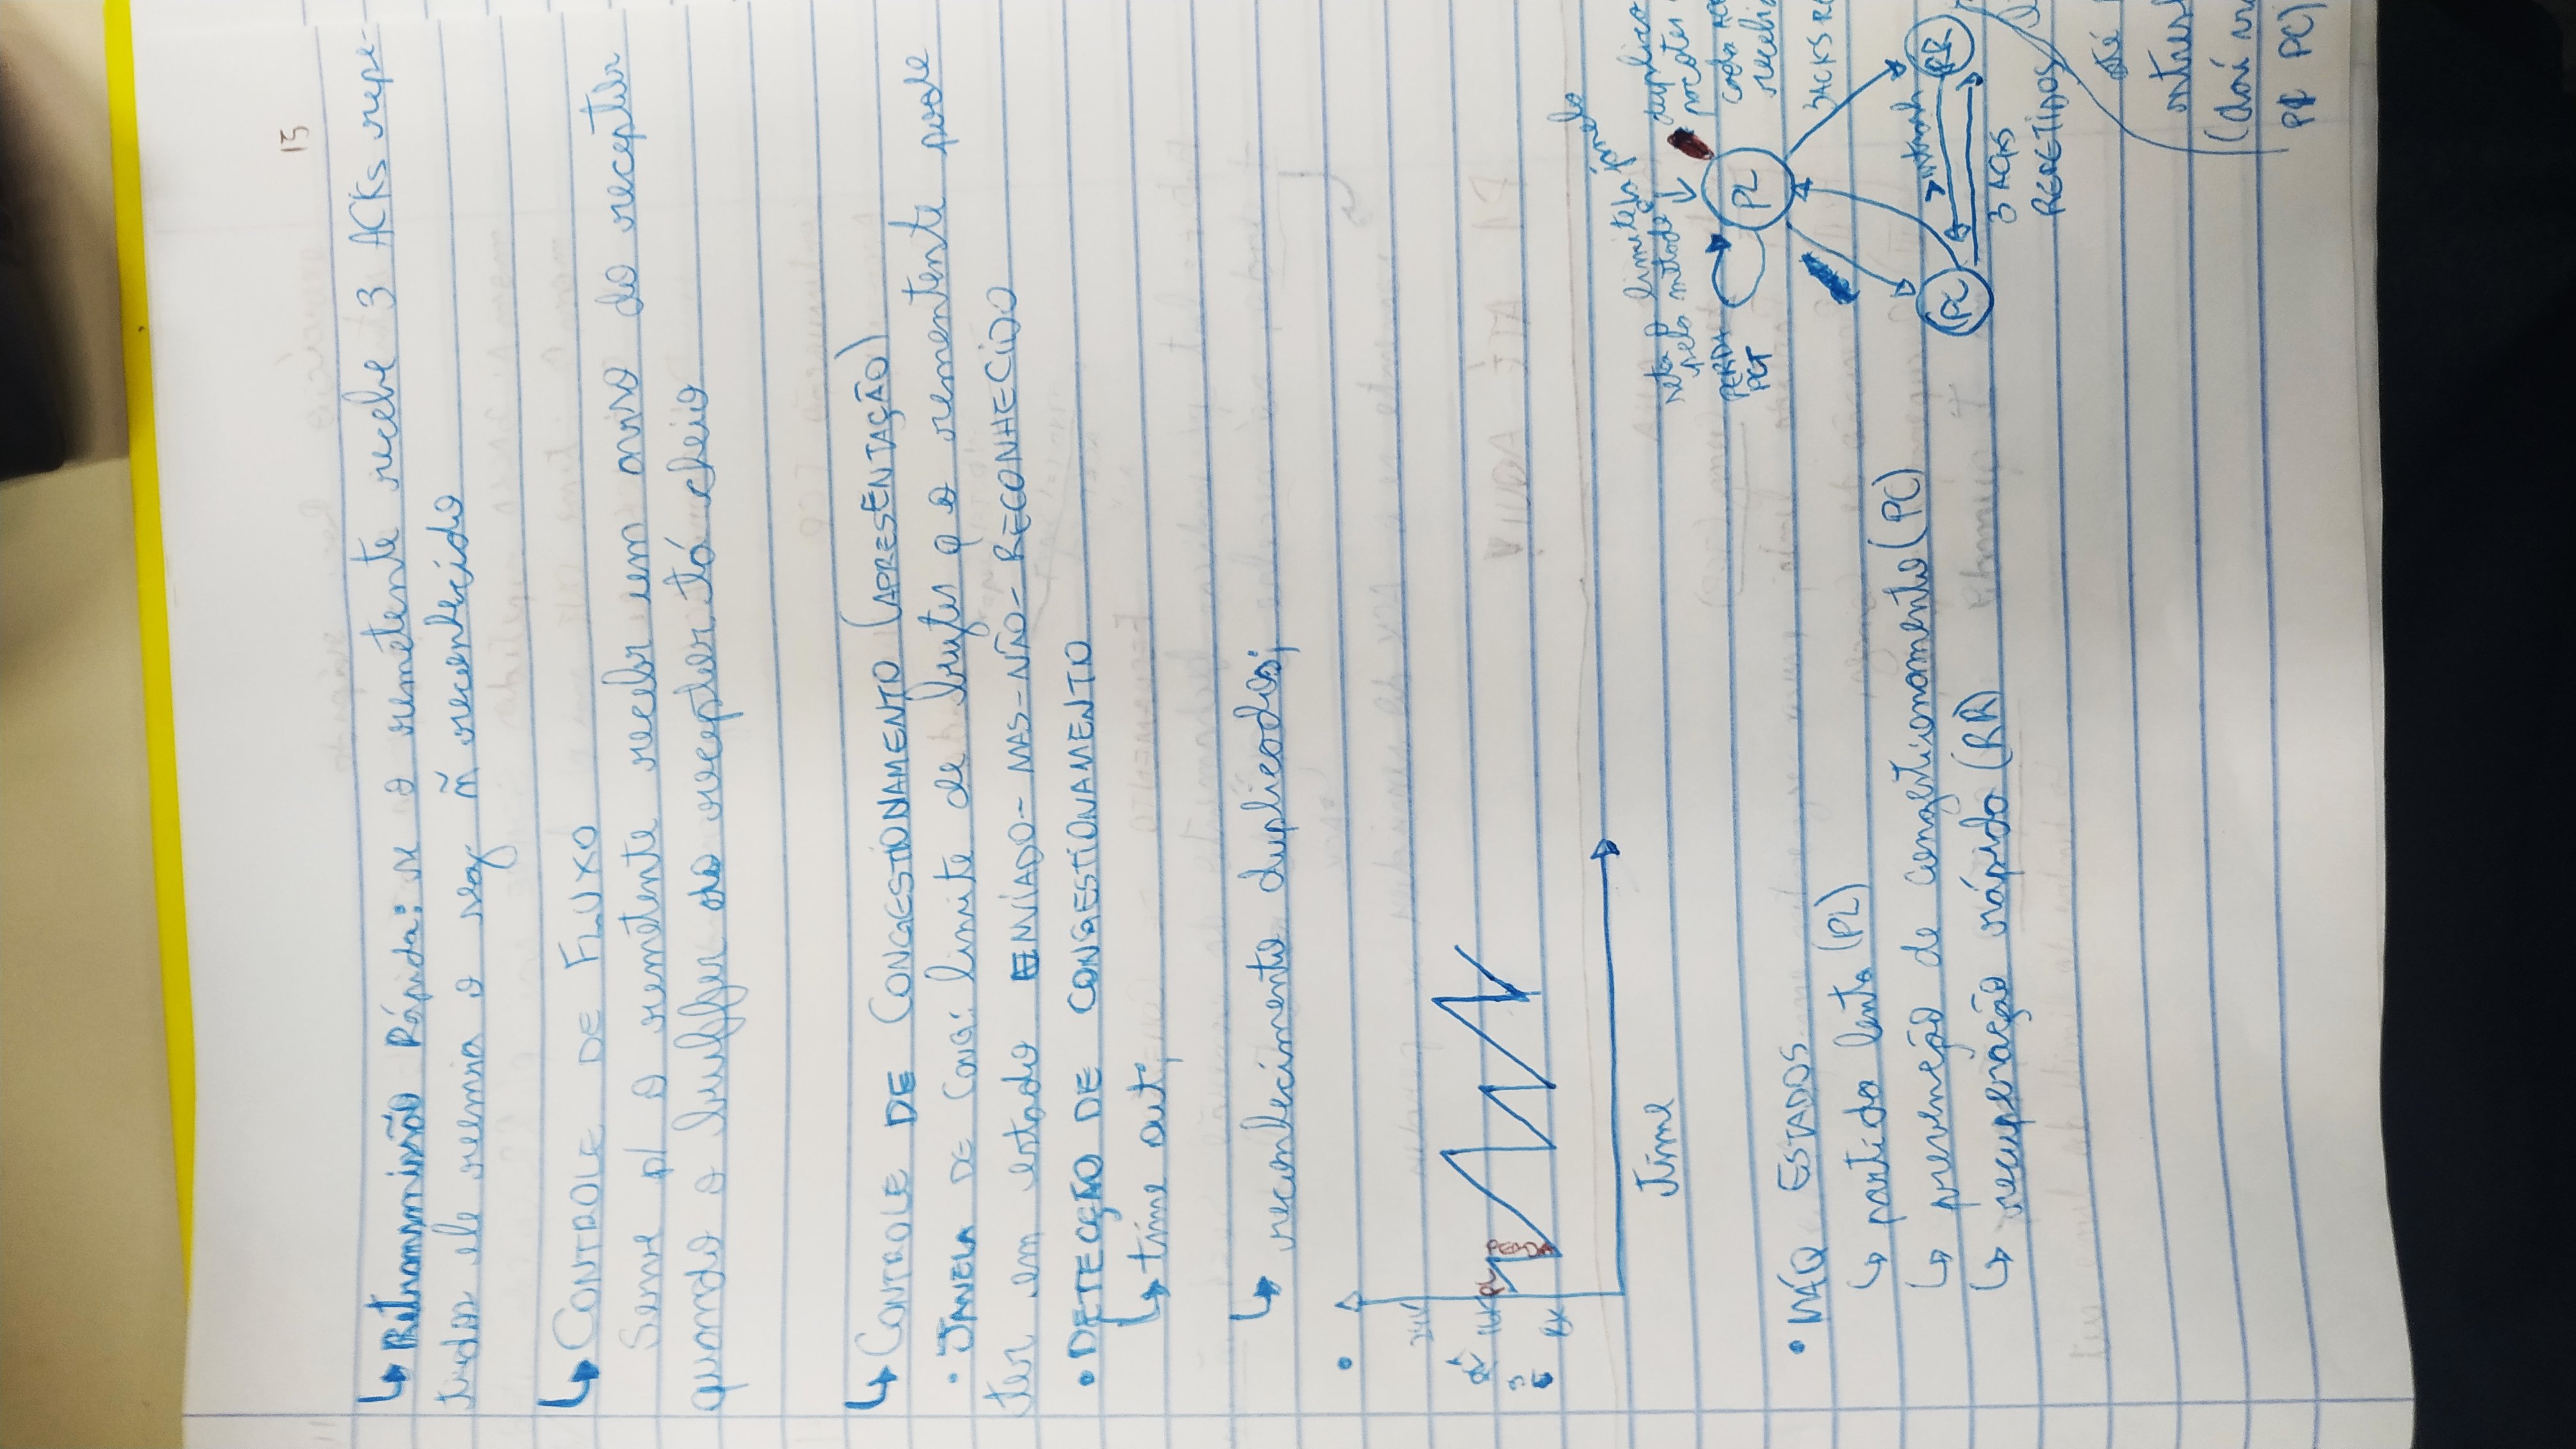 15
↳ Retransmissão Rápida: se o remetente recebe 3 ACKs repe-
tidos ele reenvia o seg ñ reconhecido
↳ CONTROLE DE FLUXO
Serve p/ o remetente receber um aviso do receptor
quando o buffer do receptor tá cheio
↳ CONTROLE DE CONGESTIONAMENTO (APRESENTAÇÃO)
• JANELA DE CONG: limite de bytes q o rementente pode
ter em estado ENVIADO-MAS-NÃO-RECONHECIDO
• DETECÇÃO DE CONGESTIONAMENTO
↳ time out;
↳ reconhecimento duplicados;
•
24K
16K
8K
PL
PERDA
Time
• MÁQ ESTADOS
↳ partida lenta (PL)
↳ prevenção de congestionamento (PC)
↳ recuperação rápida (RR)
seta o limite da janela
pelo metade
PERDA
PCT
PL
duplica
pacotes
cada ACK
recebid
3ACKS RE
PC
RR
3 ACKS
REPETIDOS
até
(daí
PC)